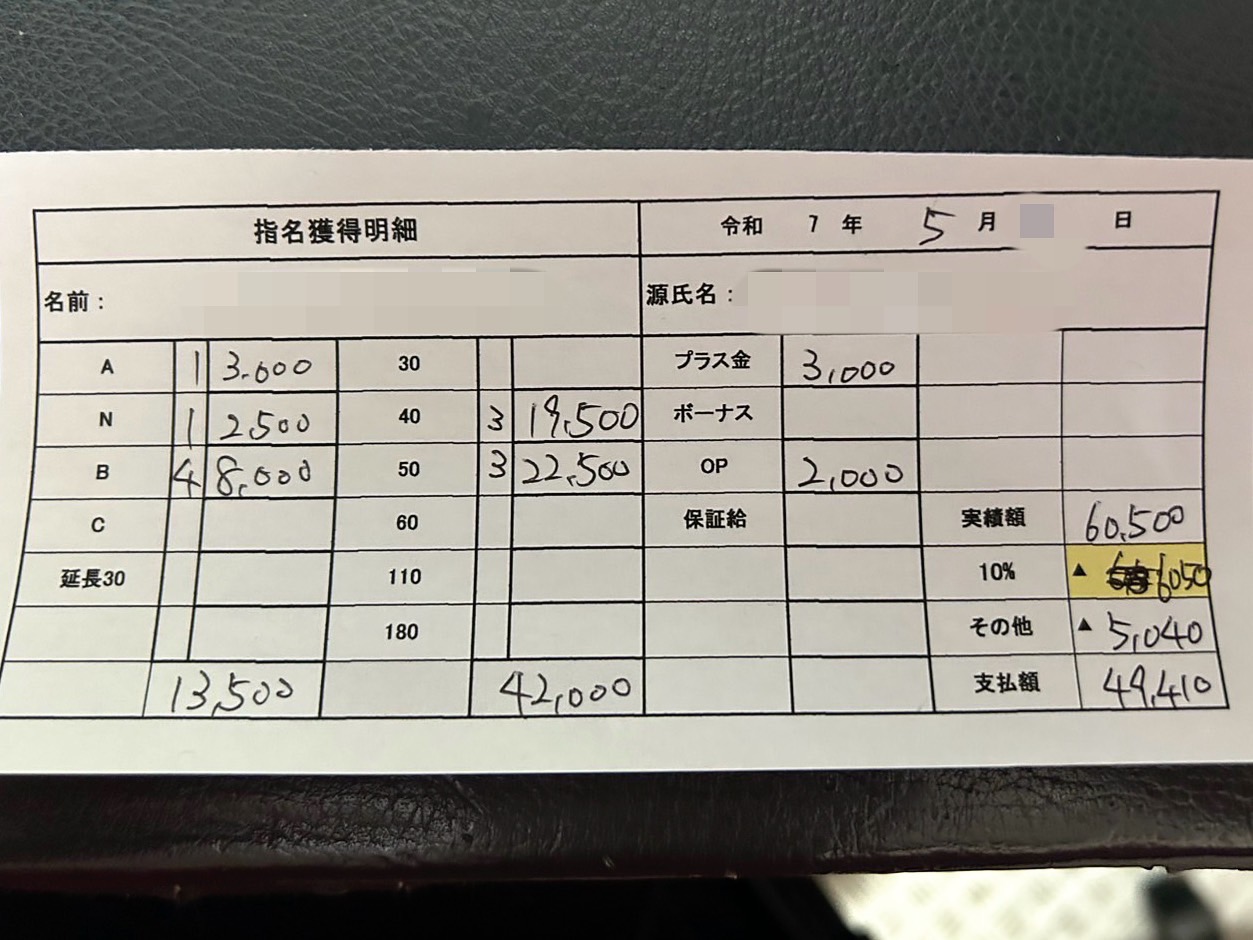 指名獲得明細 令和 7 年 5 月 日
名前： 源氏名：
A 1 3.000 30 プラス金 3,000
N 1 2,500 40 3 19,500 ボーナス
B 4 8,000 50 3 22,500 OP 2,000
C 60 保証給 実績額 60,500
延長30 110 10% ▲ 6050
180 その他 ▲ 5,040
13,500 42,000 支払額 49,410